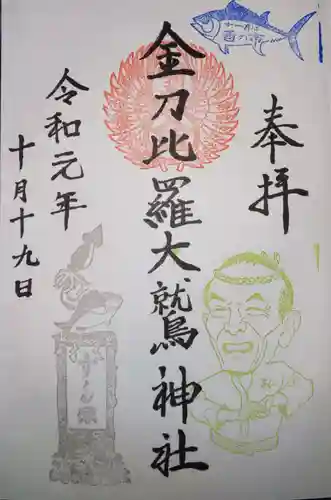 奉拝
金刀比羅大鷲神社
令和元年
十月十九日